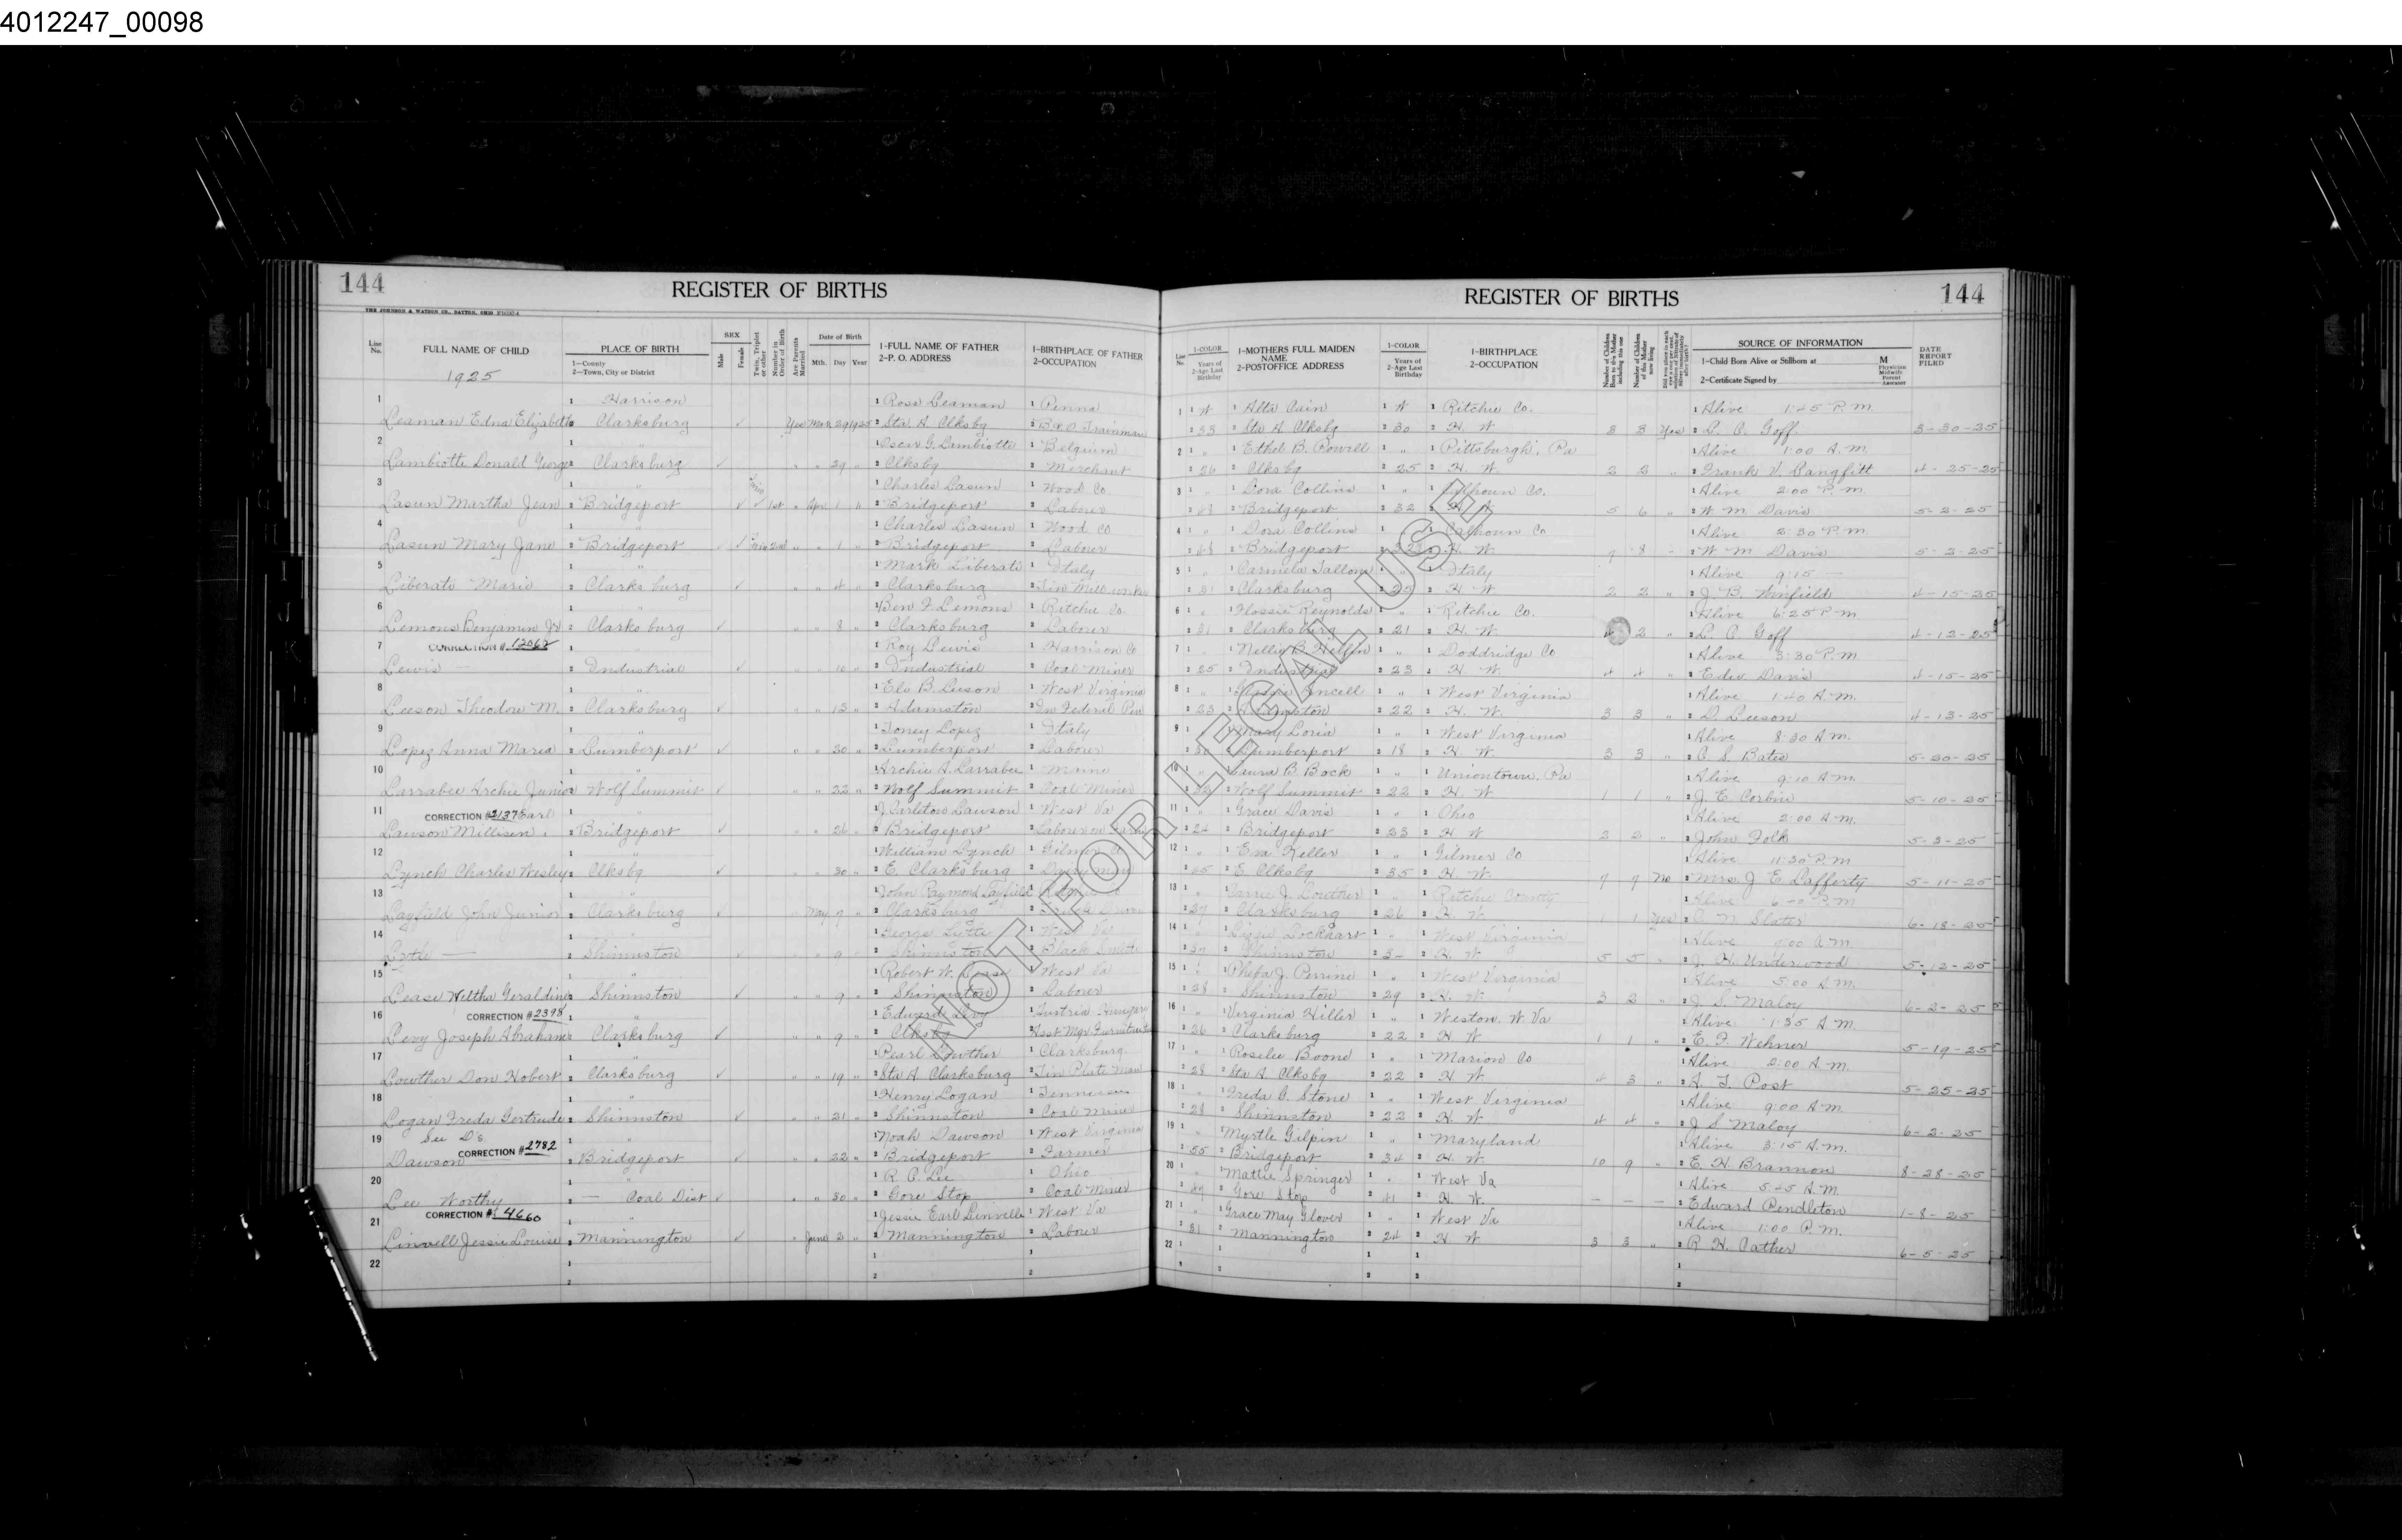 4012247_00098
144
REGISTER OF BIRTHS
THE JOHNSON & WATSON CO., DAYTON, OHIO
Line No.
FULL NAME OF CHILD
1925
PLACE OF BIRTH
1—County
2—Town, City or District
SEX
Male
Female
Twin, Triplet or other
Number in Order of Birth
Are Parents Married
Date of Birth
Mth. Day Year
1-FULL NAME OF FATHER
2-P. O. ADDRESS
1-BIRTHPLACE OF FATHER
2-OCCUPATION
1 Harrison 1 Ross Leaman 1 Penna
Leaman Edna Elizabeth 2 Clarksburg Yes Mar 29 1925 2 Sta A. Clksbg 2 B&O Trainman
2 1 " 1 Oscar G. Lambiotte 1 Belgium
Lambiotte Donald George 2 Clarksburg " " 29 " 2 Clksbg 2 Merchant
3 1 " 1 Charles Lasun 1 Wood Co.
Lasun Martha Jean 2 Bridgeport Twin 1st " Apr. 1 " 2 Bridgeport 2 Laborer
4 1 " 1 Charles Lasun 1 Wood Co
Lasun Mary Jane 2 Bridgeport Twin 2nd " " 1 " 2 Bridgeport 2 Laborer
5 1 " 1 Mark Liberati 1 Italy
Liberati Marie 2 Clarksburg " " 4 " 2 Clarksburg 2 Tin Mill
6 1 " 1 Ben F. Lemons 1 Ritchie Co.
Lemons Benjamin Jr 2 Clarksburg " " 8 " 2 Clarksburg 2 Laborer
7 CORRECTION # 12068 1 " 1 Roy Lewis 1 Harrison Co
Lewis — 2 Industrial " " 10 " 2 Industrial 2 Coal Miner
8 1 " 1 Elo B. Leeson 1 West Virginia
Leeson Theodore M. 2 Clarksburg " " 13 " 2 Adamston 2 In Federal Pen
9 1 " 1 Toney Lopez 1 Italy
Lopez Anna Maria 2 Lumberport " " 30 " 2 Lumberport 2 Laborer
10 1 " 1 Archie A. Larrabee 1 Maine
Larrabee Archie Junior 2 Wolf Summit " " 22 " 2 Wolf Summit 2 Coal Miner
11 CORRECTION # 2137 Earl 1 " 1 J. Carlston Lawson 1 West Va
Lawson Millisen 2 Bridgeport " " 26 " 2 Bridgeport 2 Laborer on Farm
12 1 " 1 William Lynch 1 Gilmer Co
Lynch Charles Wesley 2 Clksbg " " 30 " 2 E. Clarksburg 2 Dairyman
13 1 " 1 John Raymond Layfield
Layfield John Junior 2 Clarksburg " May 7 " 2 Clarksburg
14 1 " 1 George Lytle 1 West Va
Lytle — 2 Shinnston " " 9 " 2 Shinnston 2 Black Smith
15 1 " 1 Robert W. Lease 1 West Va
Lease Weltha Geraldine 2 Shinnston " " 9 " 2 Shinnston 2 Laborer
16 CORRECTION # 2398 1 " 1 Edward Levy 1 Austria Hungary
Levy Joseph Abraham 2 Clarksburg " " 9 " 2 Clksbg 2 Asst Mgr Furniture
17 1 " 1 Pearl Lowther 1 Clarksburg
Lowther Don Hobert 2 Clarksburg " " 19 " 2 Sta A. Clarksburg 2 Tin Plate Man
18 1 " 1 Henry Logan 1 Tennessee
Logan Freda Gertrude 2 Shinnston " " 21 " 2 Shinnston 2 Coal Miner
19 See D's. 1 " 1 Noah Dawson 1 West Virginia
CORRECTION # 2782
Dawson 2 Bridgeport " " 22 " 2 Bridgeport 2 Farmer
20 1 " 1 R. C. Lee 1 Ohio
Lee Worthy 2 — Coal Dist " " 30 " 2 Gore Stop 2 Coal Miner
21 CORRECTION # 4660 1 " 1 Jessie Earl Linville 1 West Va
Linvell Jessie Louise 2 Mannington " June 2 " 2 Mannington 2 Laborer
22
REGISTER OF BIRTHS
144
Line No.
1-COLOR
Years of
2-Age Last Birthday
1-MOTHERS FULL MAIDEN NAME
2-POSTOFFICE ADDRESS
1-COLOR
Years of
2-Age Last Birthday
1-BIRTHPLACE
2-OCCUPATION
Number of Children Born to this Mother including this one
Number of Children of this Mother now living
SOURCE OF INFORMATION
1-Child Born Alive or Stillborn at
2-Certificate Signed by
M
Physician
Midwife
Parent
Assessor
DATE REPORT FILED
1 1 W 1 Alta Cain 1 W 1 Ritchie Co. 1 Alive 1:45 P.M.
2 33 2 Sta A. Clksbg 2 30 2 H. W. 3 3 Yes 2 L. C. Goff 3-30-25
2 1 " 1 Ethel B. Powell 1 " 1 Pittsburgh, Pa 1 Alive 1:00 A.M.
2 26 2 Clksbg 2 25 2 H. W. 2 2 " 2 Frank V. Langfitt 4-25-25
3 1 " 1 Dora Collins 1 " 1 Calhoun Co. 1 Alive 2:00 P.M.
2 Bridgeport 2 32 2 H. W. 5 6 " 2 W. M. Davis 5-2-25
4 1 " 1 Dora Collins 1 " 1 Calhoun Co 1 Alive 2:30 P.M.
2 48 2 Bridgeport 2 32 2 H. W. 2 W. M. Davis 5-2-25
5 1 " 1 Carmela Tallone 1 " 1 Italy 1 Alive 9:15 —
2 31 2 Clarksburg 2 25 2 H. W. 2 2 " 2 J. B. Winfield 4-15-25
6 1 " 1 Flossie Reynolds 1 " 1 Ritchie Co. 1 Alive 6:25 P.M.
2 31 2 Clarksburg 2 21 2 H. W. 2 " 2 L. C. Goff 4-12-25
7 1 " 1 Nelly B. Heflin 1 " 1 Doddridge Co 1 Alive 3:30 P.M.
2 35 2 Industrial 2 23 2 H. W. 4 4 " 2 Edw Davis 4-15-25
8 1 " 1 Ancell 1 " 1 West Virginia 1 Alive 1:40 A.M.
2 23 2 Adamston 2 22 2 H. W. 3 3 " 2 D. Leeson 4-13-25
9 1 " 1 Mary Loria 1 " 1 West Virginia 1 Alive 8:30 A.M.
2 30 2 Lumberport 2 18 2 H. W. 3 3 " 2 C. L. Bates 5-20-25
10 1 " 1 Laura B. Bock 1 " 1 Uniontown, Pa 1 Alive 9:10 A.M.
2 Wolf Summit 2 22 2 H. W. 1 1 " 2 J. E. Corbin 5-10-25
11 1 " 1 Grace Davis 1 " 1 Ohio 1 Alive 2:00 A.M.
2 24 2 Bridgeport 2 23 2 H. W. 2 2 " 2 John Folk 5-3-25
12 1 " 1 Eva Keller 1 " 1 Gilmer Co 1 Alive 11:30 P.M.
2 2 E. Clksbg 2 35 2 H. W. 9 9 No 2 Mrs. J. E. Lafferty 5-11-25
13 1 " 1 Carrie J. Lowther 1 " 1 Ritchie County 1 Alive P.M.
2 27 2 Clarksburg 2 26 2 H. W. 1 1 Yes 2 C. N. Slater 6-18-25
14 1 " 1 Lizzie Lockhart 1 " 1 West Virginia 1 Alive 9:00 A.M.
2 37 2 Shinnston 2 34 2 H. W. 5 5 " 2 J. H. Underwood 5-12-25
15 1 " 1 Phefa J. Perrine 1 " 1 West Virginia 1 Alive 5:00 A.M.
2 28 2 Shinnston 2 29 2 H. W. 3 2 " 2 J. S. Maloy 6-2-25
16 1 " 1 Virginia Hiller 1 " 1 Weston, W Va 1 Alive 1:35 A.M.
2 26 2 Clarksburg 2 22 2 H. W. 1 1 " 2 E. F. Wehner 5-19-25
17 1 " 1 Roselee Boone 1 " 1 Marion Co 1 Alive 2:00 A.M.
2 28 2 Sta A. Clksbg 2 22 2 H. W. 4 3 " 2 A. T. Post 5-25-25
18 1 " 1 Freda G. Stone 1 " 1 West Virginia 1 Alive 9:00 A.M.
2 28 2 Shinnston 2 22 2 H. W. 4 4 " 2 J S Maloy 6-2-25
19 1 " 1 Myrtle Gilpin 1 " 1 Maryland 1 Alive 3:15 A.M.
2 55 2 Bridgeport 2 34 2 H. W. 10 9 " 2 E. H. Brannon 8-28-25
20 1 " 1 Mattie Springer 1 " 1 West Va 1 Alive 5:45 A.M.
2 49 2 Gore Stop 2 41 2 H. W. — — — 2 Edward Pendleton 1-8-25
21 1 " 1 Grace May Glover 1 " 1 West Va 1 Alive 1:00 P.M.
2 31 2 Mannington 2 24 2 H W 3 3 " 2 R. H. Cather 6-5-25
22
NOT FOR LEGAL USE